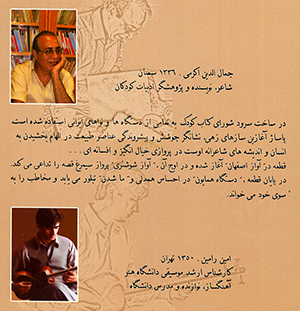 جمال الدین اکرمی . ۱۳۳۶ سمنان
شاعر، نویسنده و پژوهشگر ادبیات کودکان
در ساخت سرود شورای کتاب کودک به تمامی از دستگاه ها و نواهای ایرانی استفاده شده است.
پاساژ آغازین سازهای زهی، نشانگر جوشش و پیشروندگی عناصر طبیعت در الهام بخشیدن به
انسان و اندیشه های شاعرانه اوست در پروازی خیال انگیز و افسانه ای ...
قطعه در آواز اصفهان" آغاز شده و در اوج آن، "آواز شوشتری" پرواز سیمرغ قصه را تداعی می کند.
در پایان قطعه، "دستگاه همایون" در احساس همدلی و "ما شدن" تبلور می یابد و مخاطب را به
سوی خود می خواند.
امین رامین . ۱۳۵۰ تهران
کارشناس ارشد موسیقی دانشگاه هنر
آهنگساز، نوازنده و مدرس دانشگاه